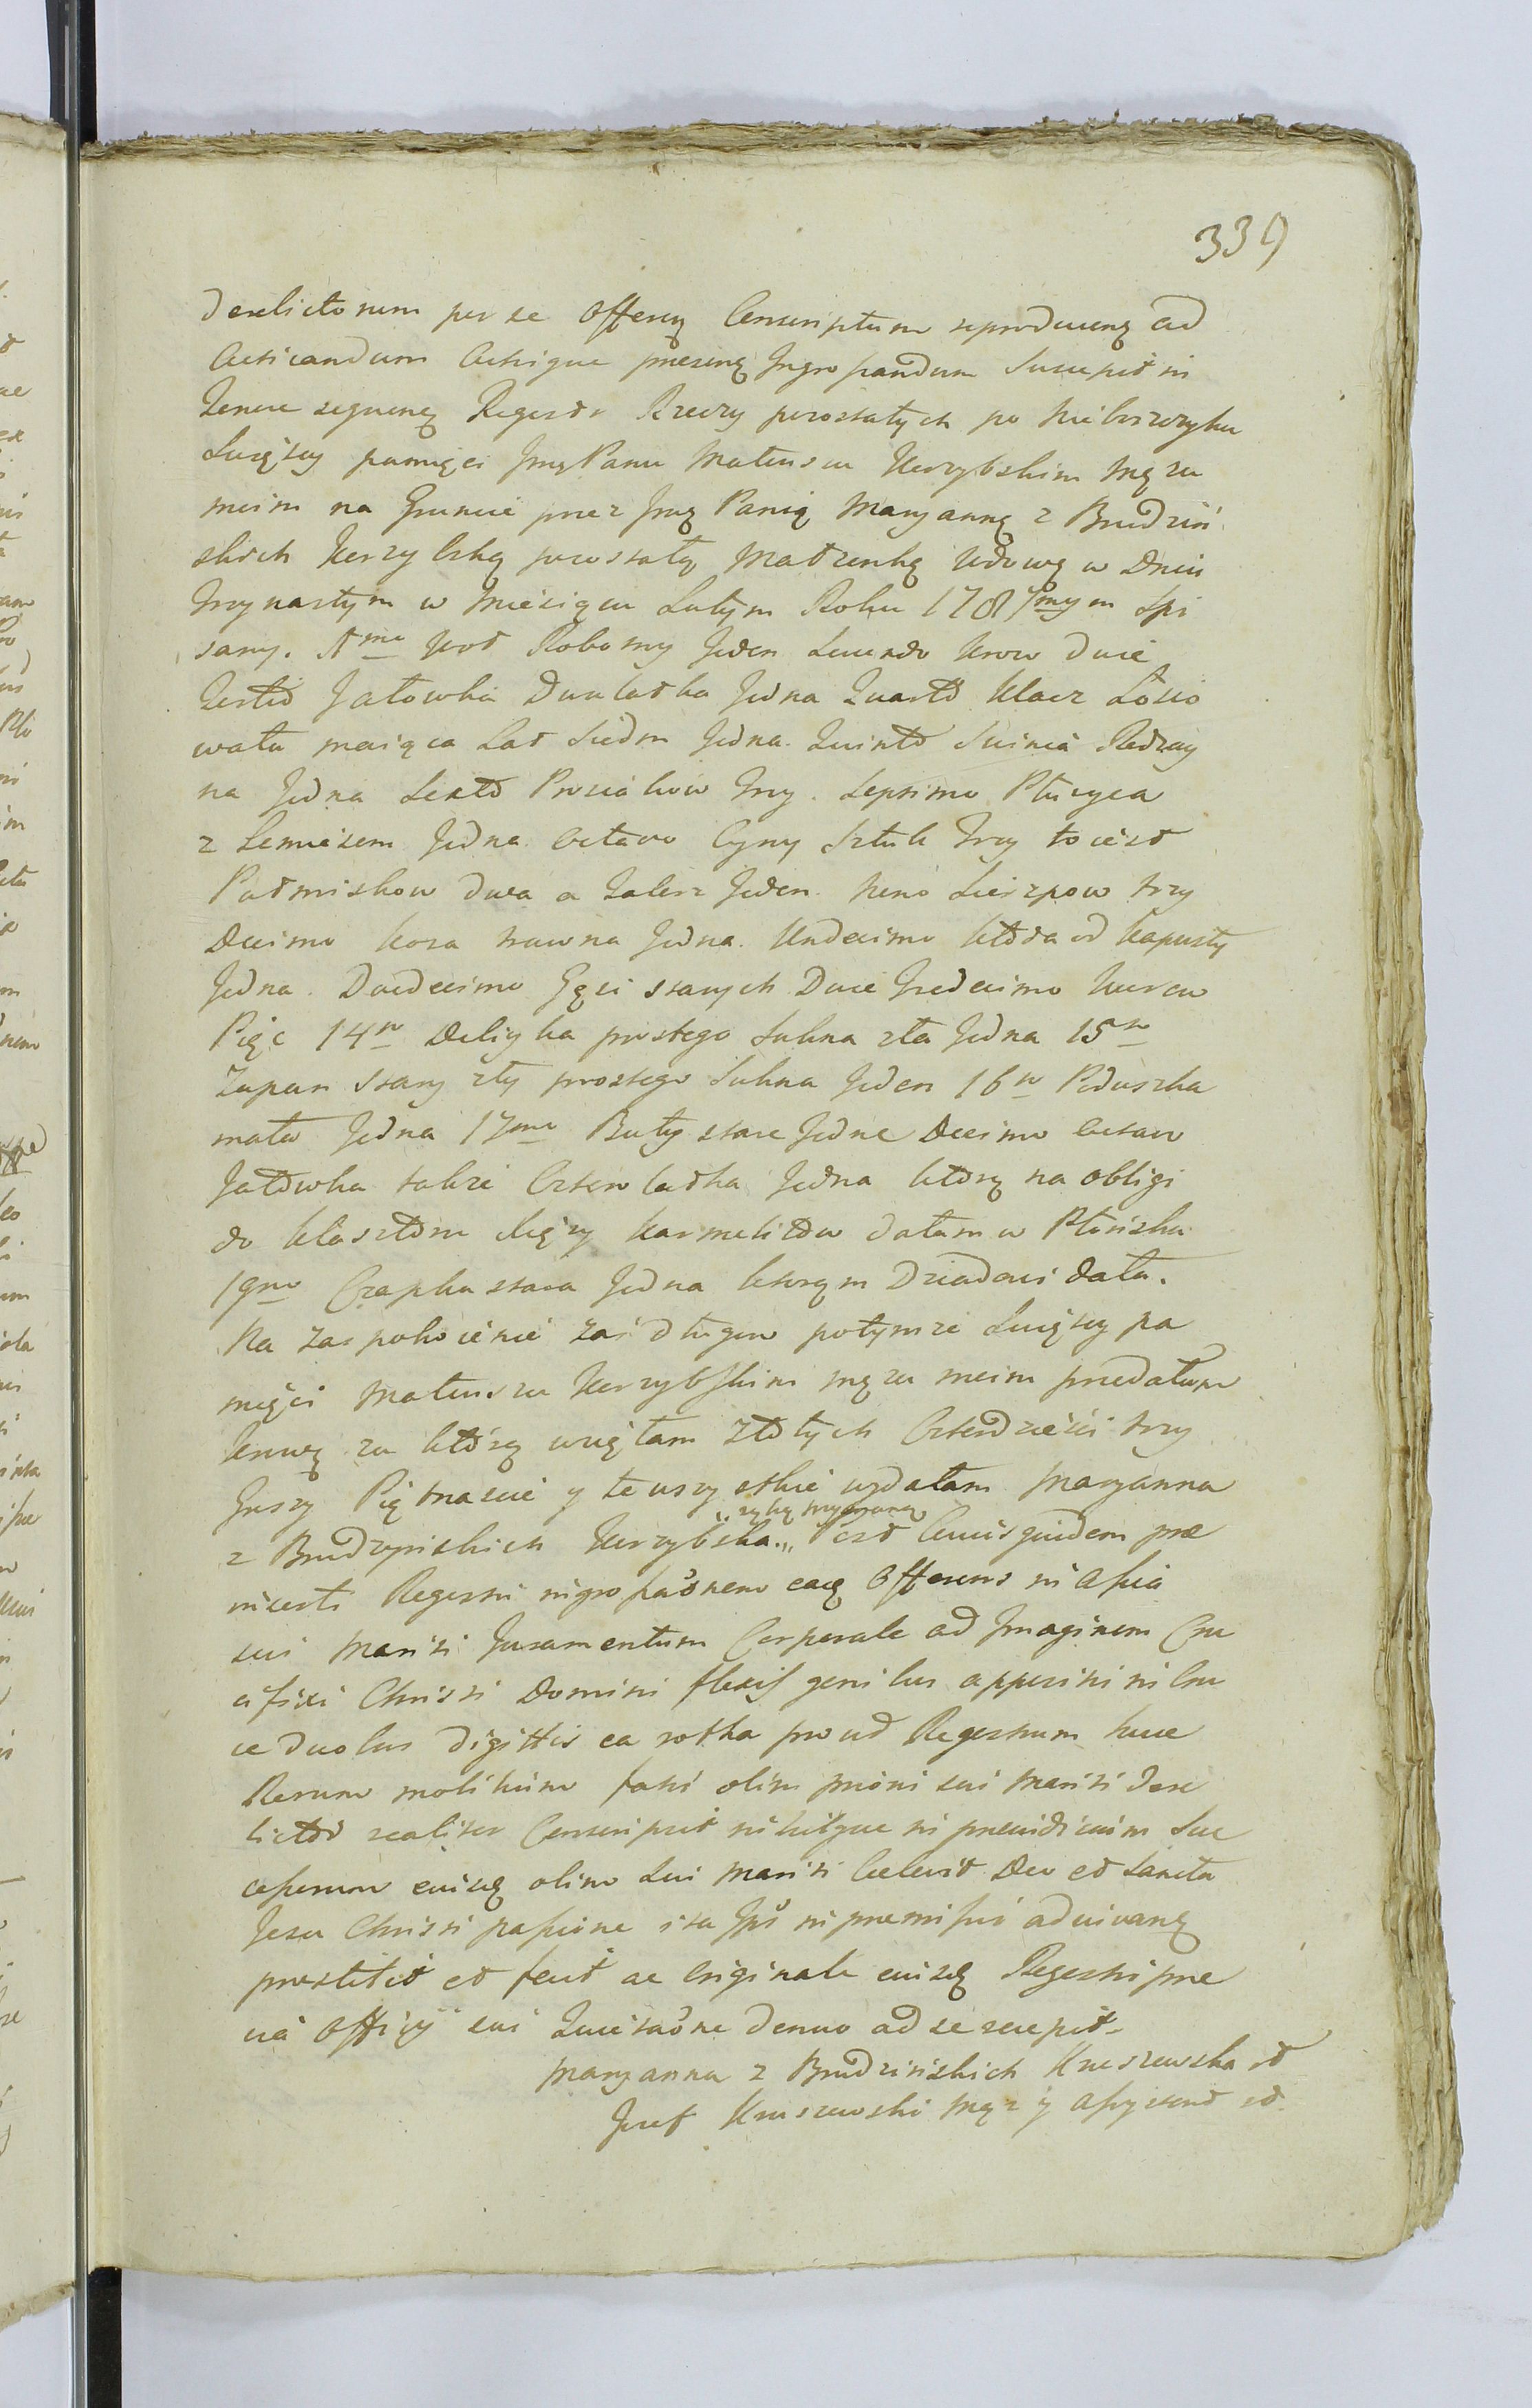 339
derelictorum per se offeren Conscriptum reproducens ad
Acticandum Actisque presens Ingrossandum Suscepit in
Tenore sequenq Regestr Rzeczy pozostałych po Nieboszczyku
Swiętey pamięci Jmq Panu Mateuszu Kerzybskim Męzu
moim na Gruncie przez Jmq Panią Maryannę z Brudziń
skich Kerzybską pozostałą Małzonkę Wdowę w Dniu
trzynastym w Miesiącu Lutym Roku 1787mym Spi
sany. A mo Woł Robotny Jeden Secundo Krow Dwie
Tertio Jałowka Dwulatka Jedna Quarto Klacz Łosio
wata maiąca Lat Siedm Jedna. Quinto Swinia Rodzay
na Jedna Sexto Prosiakow trzy. Septimo Płuzyca
z Lemieszem Jedna Octavo Cyny Sztuk trzy to iest
Pułmiskow dwa a Talerz Jeden. Nono Sierzpow trzy
Decimo kosa trawna Jedna. Undecimo kłoda od kapusty
Jedna. Duodecimo Gęsi starych Dwie Tredecimo kurow
Pięc 14to Deliyka prostego Sukna zła Jedna 15to
Zupan stary zły prostego Sukna Jeden 16to Poduszka
mała Jedna 17mo Buty stare Jedne Decimo octavo
Jałowka takze Czteroladka Jedna ktorą na obligi
do klasztoru Xięzy karmelitow dałam w Płońsku
19no Czapka stara Jedna ktorąm Dziadowi dała.
Na zaspokoienie zaś długow potymze Swiętey pa
mięci Mateuszu Kerzybskim męzu moim przedałam
krowę za ktorą wzięłam Złotych Czterdzieści trzy
Groszy Piętnascie y te wszystkie wydałam Maryanna
z Brudzyńskich Kerzybska. ręką trzymaną Post Cuius quidem pre
inserti Regestri ingrossaonem eaq Offerens in Assia
sui Mariti Juramentum Corporale ad Imaginem Cru
cifixi Christi Domini flexis genibus appositis in Cru
ce duobus digittis ea rotha pro ut Regestrum huce
Rerum mobilium post olim primi sui Mariti dere
lictor realiter Conscripsit nihilque in preiudicium Suc
cessorum eiusq olim sui Mariti Celavit Deo et Sancta
Jesu Christi passione ita Ipsi in premissis adiuvanq
prestitit et fecit ac originale eiusq Regestri pre
via Officij sui Quietaone denuo ad se recepit
Maryanna z Brudzińskich Kruszewska st
Jozef Kruszewski Mąz y assystent st